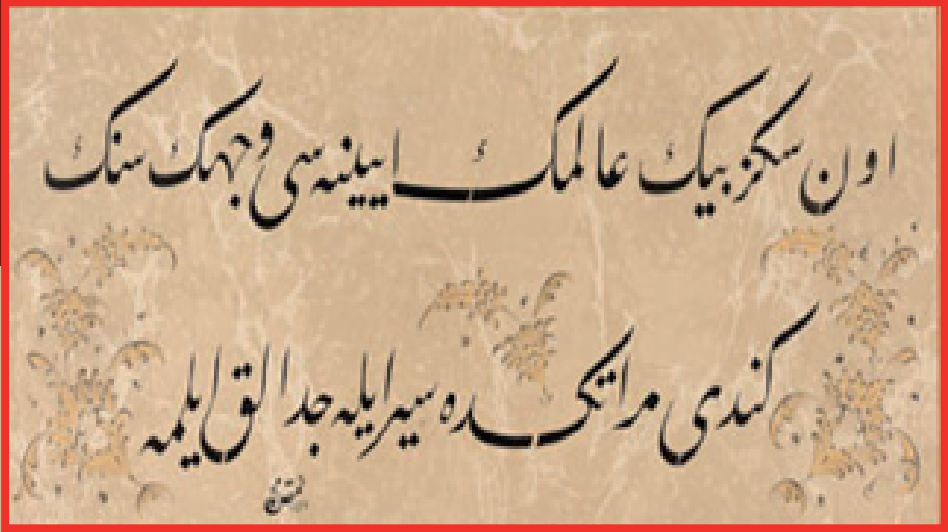 اون سكز بيك عالمك ايينه سى وجهك سنك
كندى مراتكده سير ايله جدالق ايلمه